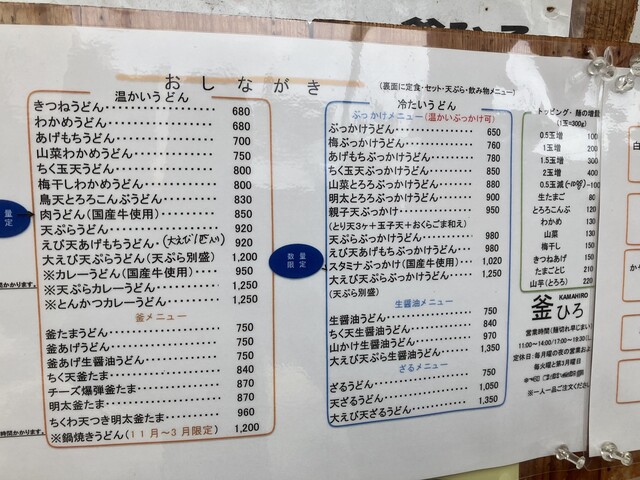 おしながき
(裏面に定食・セット・天ぷら・飲み物メニュー)
温かいうどん
きつねうどん 680
わかめうどん 680
あげもちうどん 700
山菜わかめうどん 750
ちく玉天うどん 800
梅干しわかめうどん 800
鳥天とろろこんぶうどん 830
肉うどん(国産牛使用) 850
天ぷらうどん 920
えび天あげもちうどん(大えび1匹入り) 920
大えび天ぷらうどん(天ぷら別盛) 1,200
※カレーうどん(国産牛使用) 950
※天ぷらカレーうどん 1,250
※とんかつカレーうどん 1,250
釜メニュー
釜たまうどん 750
釜あげうどん 750
釜あげ生醤油うどん 750
ちく天釜たま 840
チーズ爆弾釜たま 870
明太釜たま 870
ちくわ天つき明太釜たま 960
※鍋焼きうどん(11月~3月限定) 1,200
量
定
かかります。
時間かかります。
冷たいうどん
ぶっかけメニュー(温かいぶっかけ可)
ぶっかけうどん 650
梅ぶっかけうどん 760
あげもちぶっかけうどん 780
ちく玉天ぶっかけうどん 850
山菜とろろぶっかけうどん 880
明太とろろぶっかけうどん 900
親子天ぶっかけ 950
(とり天3ヶ+玉子天+おくらごま和え)
天ぷらぶっかけうどん 980
えび天あげもちぶっかけうどん 980
スタミナぶっかけ(国産牛使用) 1,020
大えび天ぷらぶっかけうどん 1,250
(天ぷら別盛)
数量
限定
生醤油メニュー
生醤油うどん 750
ちく天生醤油うどん 840
山かけ生醤油うどん 970
大えび天ぷら生醤油うどん 1,350
ざるメニュー
ざるうどん 750
天ざるうどん 1,050
大えび天ざるうどん 1,350
トッピング・麺の増量
(1玉=300g)
0.5玉増 100
1玉増 200
1.5玉増 300
2玉増 400
-100
生たまご 80
とろろこんぶ 120
わかめ 130
山菜 130
梅干し 150
きつねあげ 150
たまごとじ 210
山芋(とろろ) 220
釜ひろ
KAMAHIRO
営業時間(麺切れ早じまい)
11:00~14:00/17:00~19:30
定休日:毎月曜の夜の営業および
毎火曜と第3月曜日
※一人一品ご注文ください